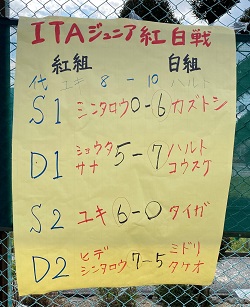 ITAジュニア紅白戦
紅組 白組
代 ユキ 8 - 10 ハルト
S1 シンタロウ 0-6 カズトシ
D1 ショウタ サナ 5-7 ハルト コウスケ
S2 ユキ 6-0 タイガ
D2 ヒデ シンタロウ 7-5 ミドリ タケオ